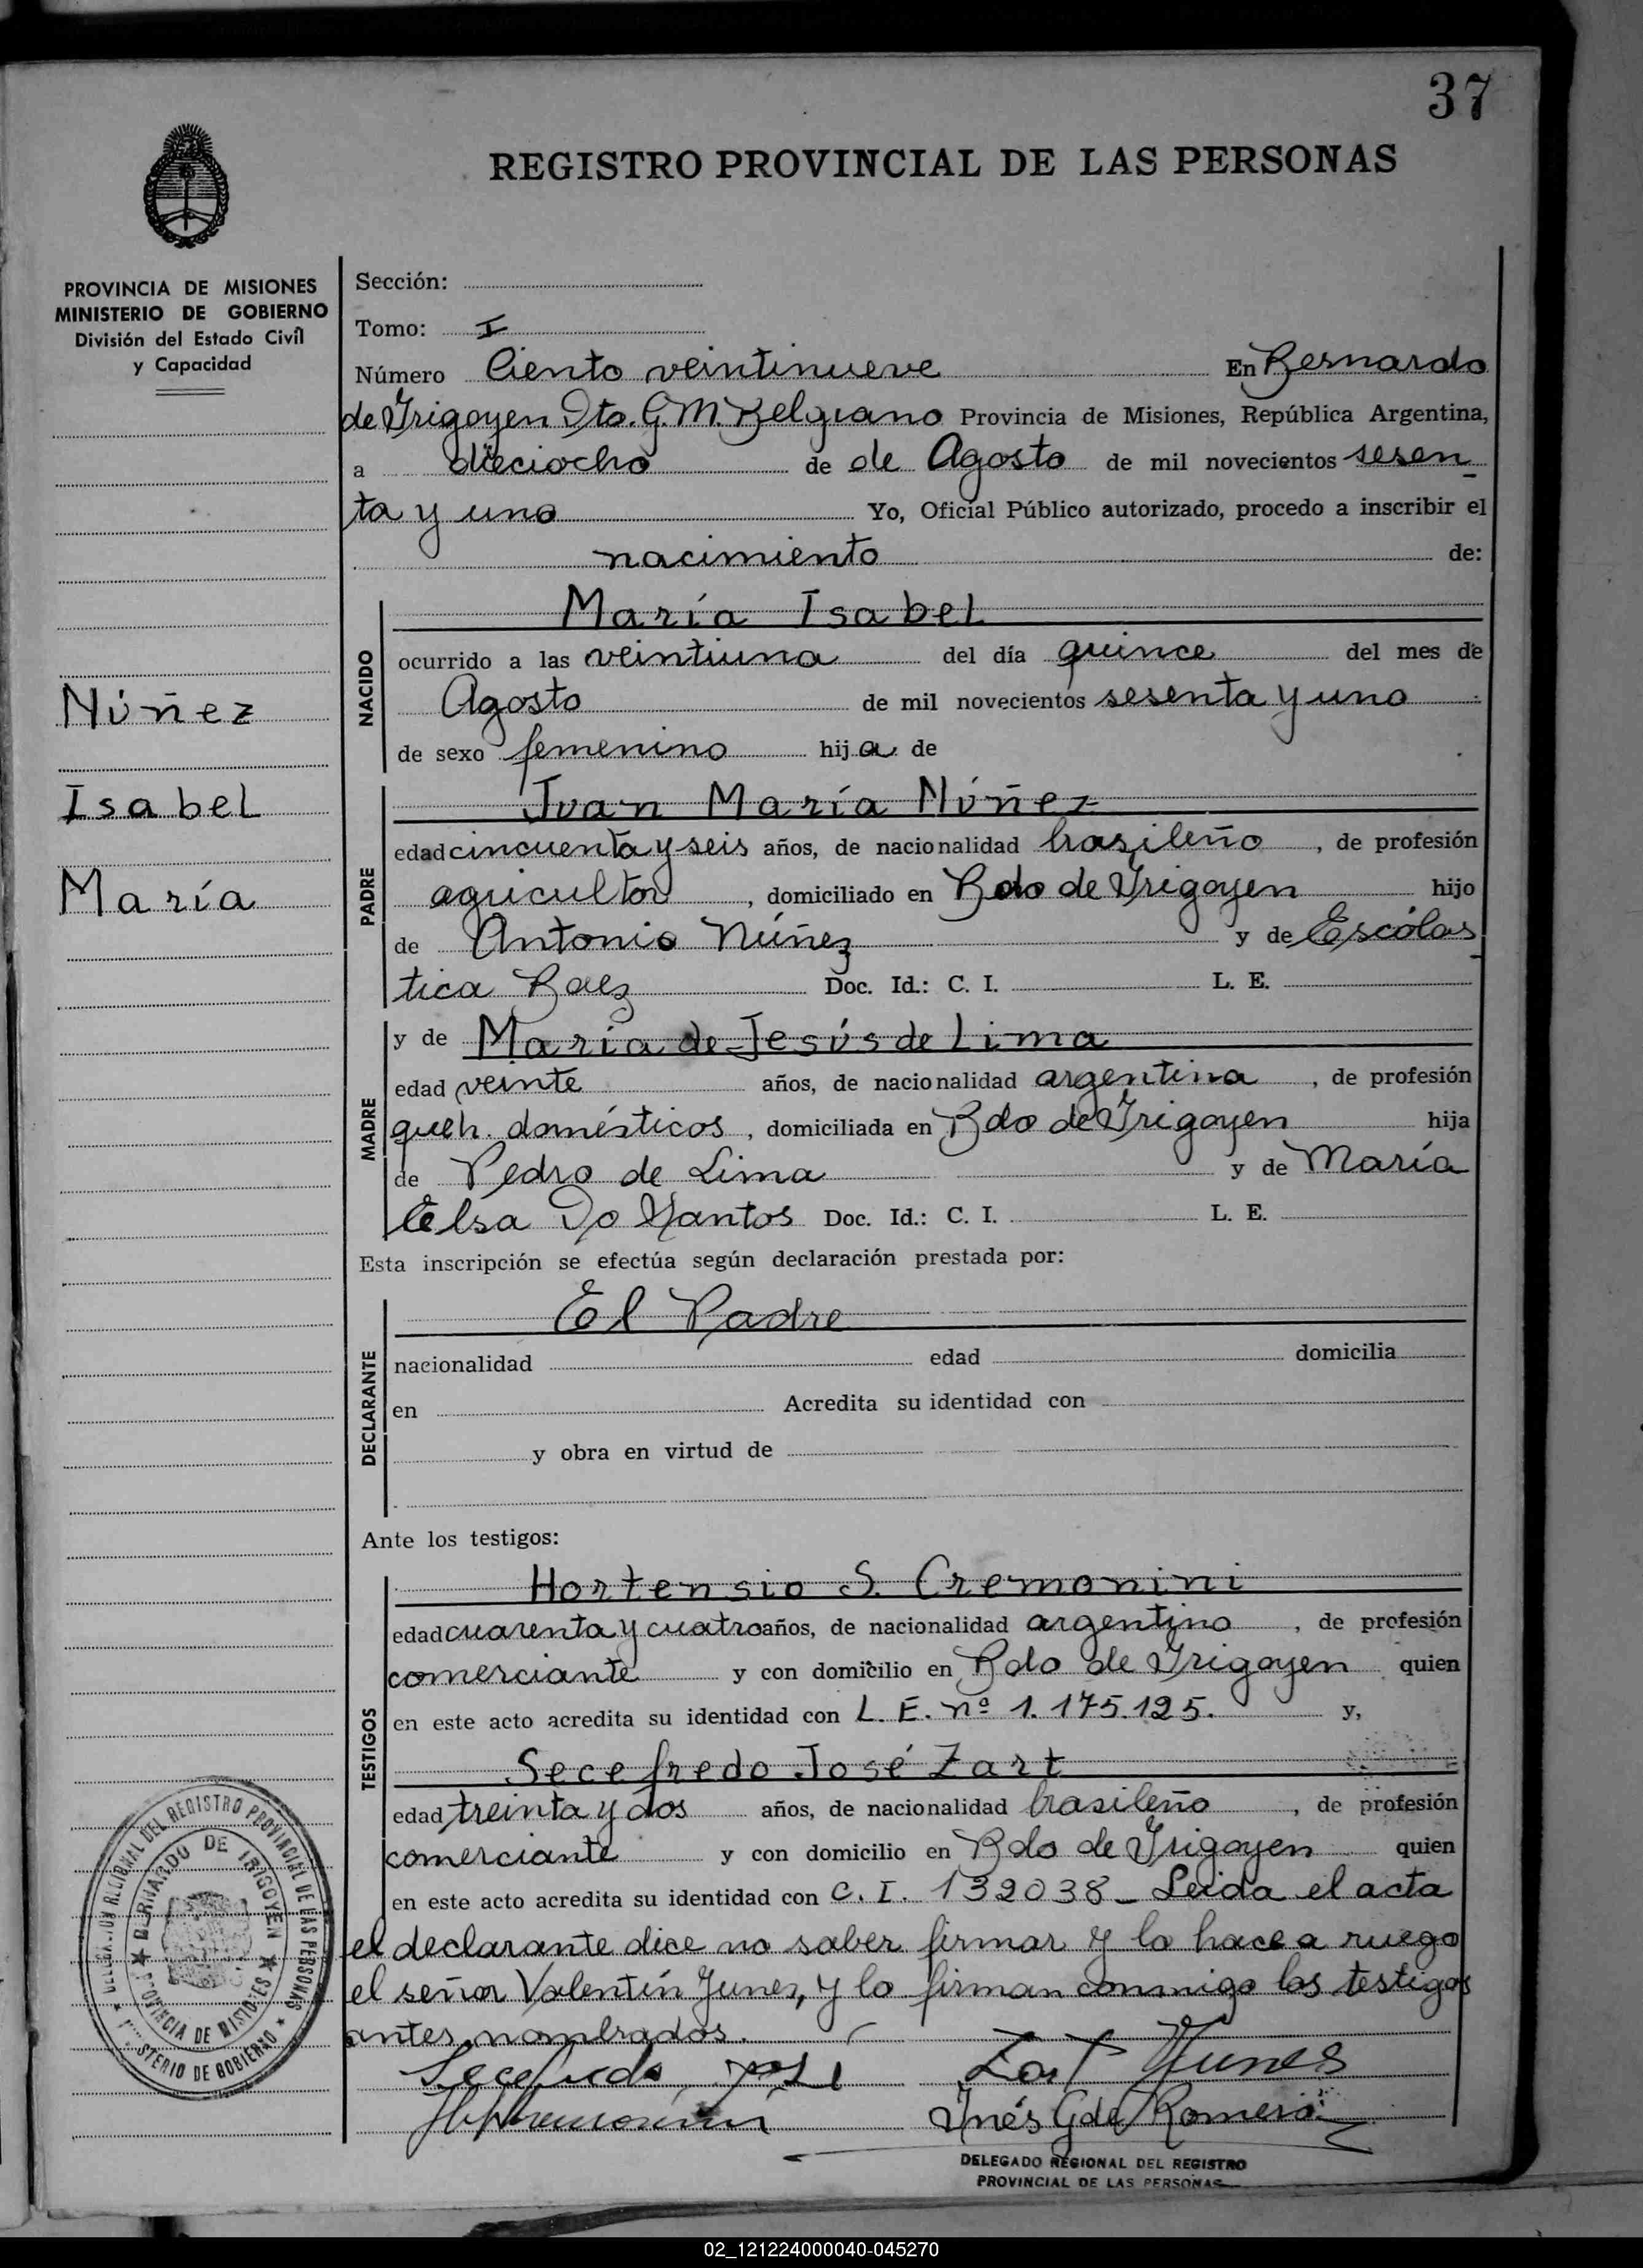 37
REGISTRO PROVINCIAL DE LAS PERSONAS
PROVINCIA DE MISIONES
MINISTERIO DE GOBIERNO
División del Estado Civil
y Capacidad
Núñez
Isabel
María
Sección:
Tomo: I
Número Ciento veintinueve En Bernardo
de Yrigoyen Dto. G. M. Belgrano Provincia de Misiones, República Argentina,
a dieciocho de de Agosto de mil novecientos sesen
ta y uno Yo, Oficial Público autorizado, procedo a inscribir el
nacimiento de:
NACIDO
María Isabel
ocurrido a las veintiuna del día quince del mes de
Agosto de mil novecientos sesenta y uno
de sexo femenino hija de
PADRE
Juan María Núñez
edad cincuenta y seis años, de nacionalidad brasileño, de profesión
agricultor, domiciliado en Bdo de Yrigoyen hijo
de Antonio Núñez y de Escolás
tica Baez Doc. Id.: C. I. L. E.
MADRE
y de María de Jesús de Lima
edad veinte años, de nacionalidad argentina, de profesión
queh. domésticos, domiciliada en Bdo de Yrigoyen hija
de Pedro de Lima y de María
Elsa Do Santos Doc. Id.: C. I. L. E.
Esta inscripción se efectúa según declaración prestada por:
DECLARANTE
El Padre
nacionalidad edad domicilia
en Acredita su identidad con
y obra en virtud de
Ante los testigos:
TESTIGOS
Hortensio S. Cremonini
edad cuarenta y cuatro años, de nacionalidad argentino, de profesión
comerciante y con domicilio en Bdo de Yrigoyen quien
en este acto acredita su identidad con L. E. nº 1.175.125. y,
Secefredo José Zart
edad treinta y dos años, de nacionalidad brasileño, de profesión
comerciante y con domicilio en Bdo de Yrigoyen quien
en este acto acredita su identidad con C. I. 132038 - Leida el acta
el declarante dice no saber firmar y lo hace a ruego
el señor Valentín Yunes, y lo firman conmigo los testigos
antes nombrados.
Secefredo José Zart Yunes
Inés G de Romero
DELEGADO REGIONAL DEL REGISTRO
PROVINCIAL DE LAS PERSONAS
REGIONAL DEL REGISTRO PROVINCIAL DE LAS PERSONAS
BERNARDO DE IRIGOYEN
PROVINCIA DE MISIONES
MINISTERIO DE GOBIERNO
02_121224000040-045270